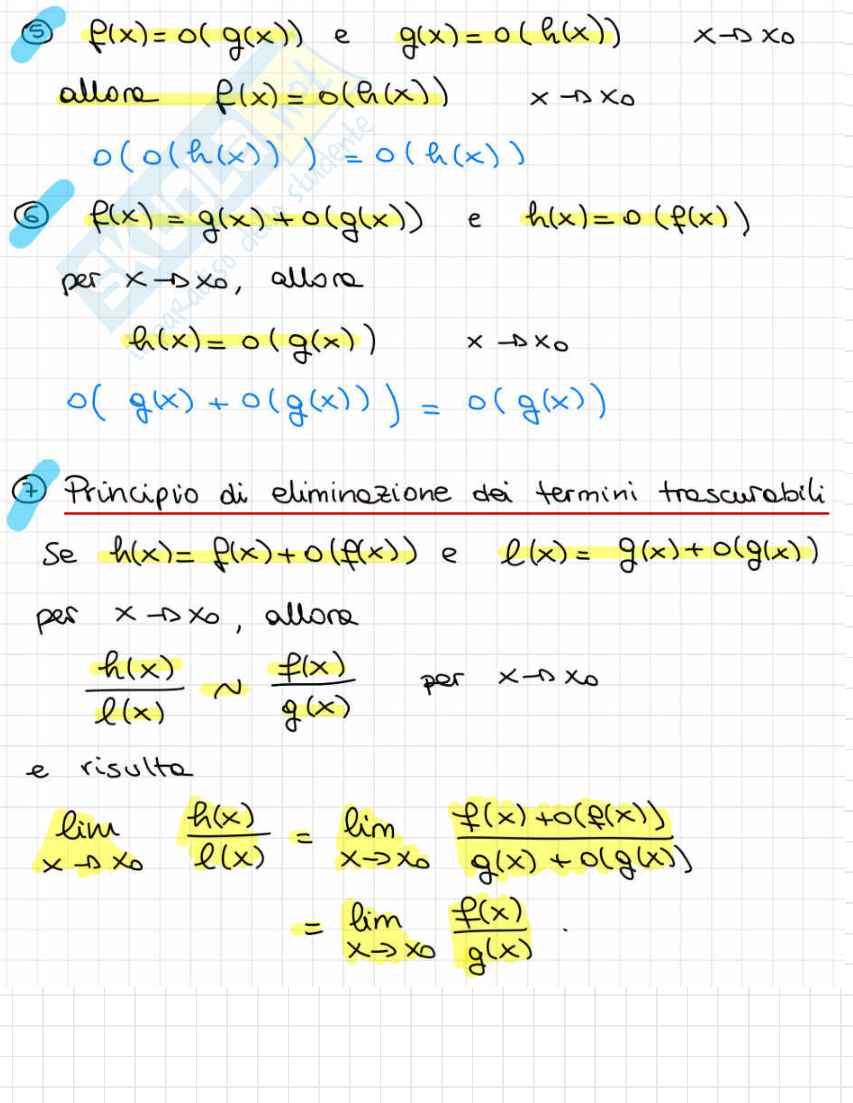 ⑤ f(x) = o(g(x)) e g(x) = o(h(x)) x → x₀
allora f(x) = o(h(x)) x → x₀
o(o(h(x))) = o(h(x))
⑥ f(x) = g(x) + o(g(x)) e h(x) = o(f(x))
per x → x₀, allora
h(x) = o(g(x)) x → x₀
o(g(x) + o(g(x))) = o(g(x))
⑦ Principio di eliminazione dei termini trascurabili
Se h(x) = f(x) + o(f(x)) e l(x) = g(x) + o(g(x))
per x → x₀, allora
h(x)/l(x) ~ f(x)/g(x) per x → x₀
e risulta
lim x → x₀ h(x)/l(x) = lim x → x₀ (f(x) + o(f(x)))/(g(x) + o(g(x)))
= lim x → x₀ f(x)/g(x) .